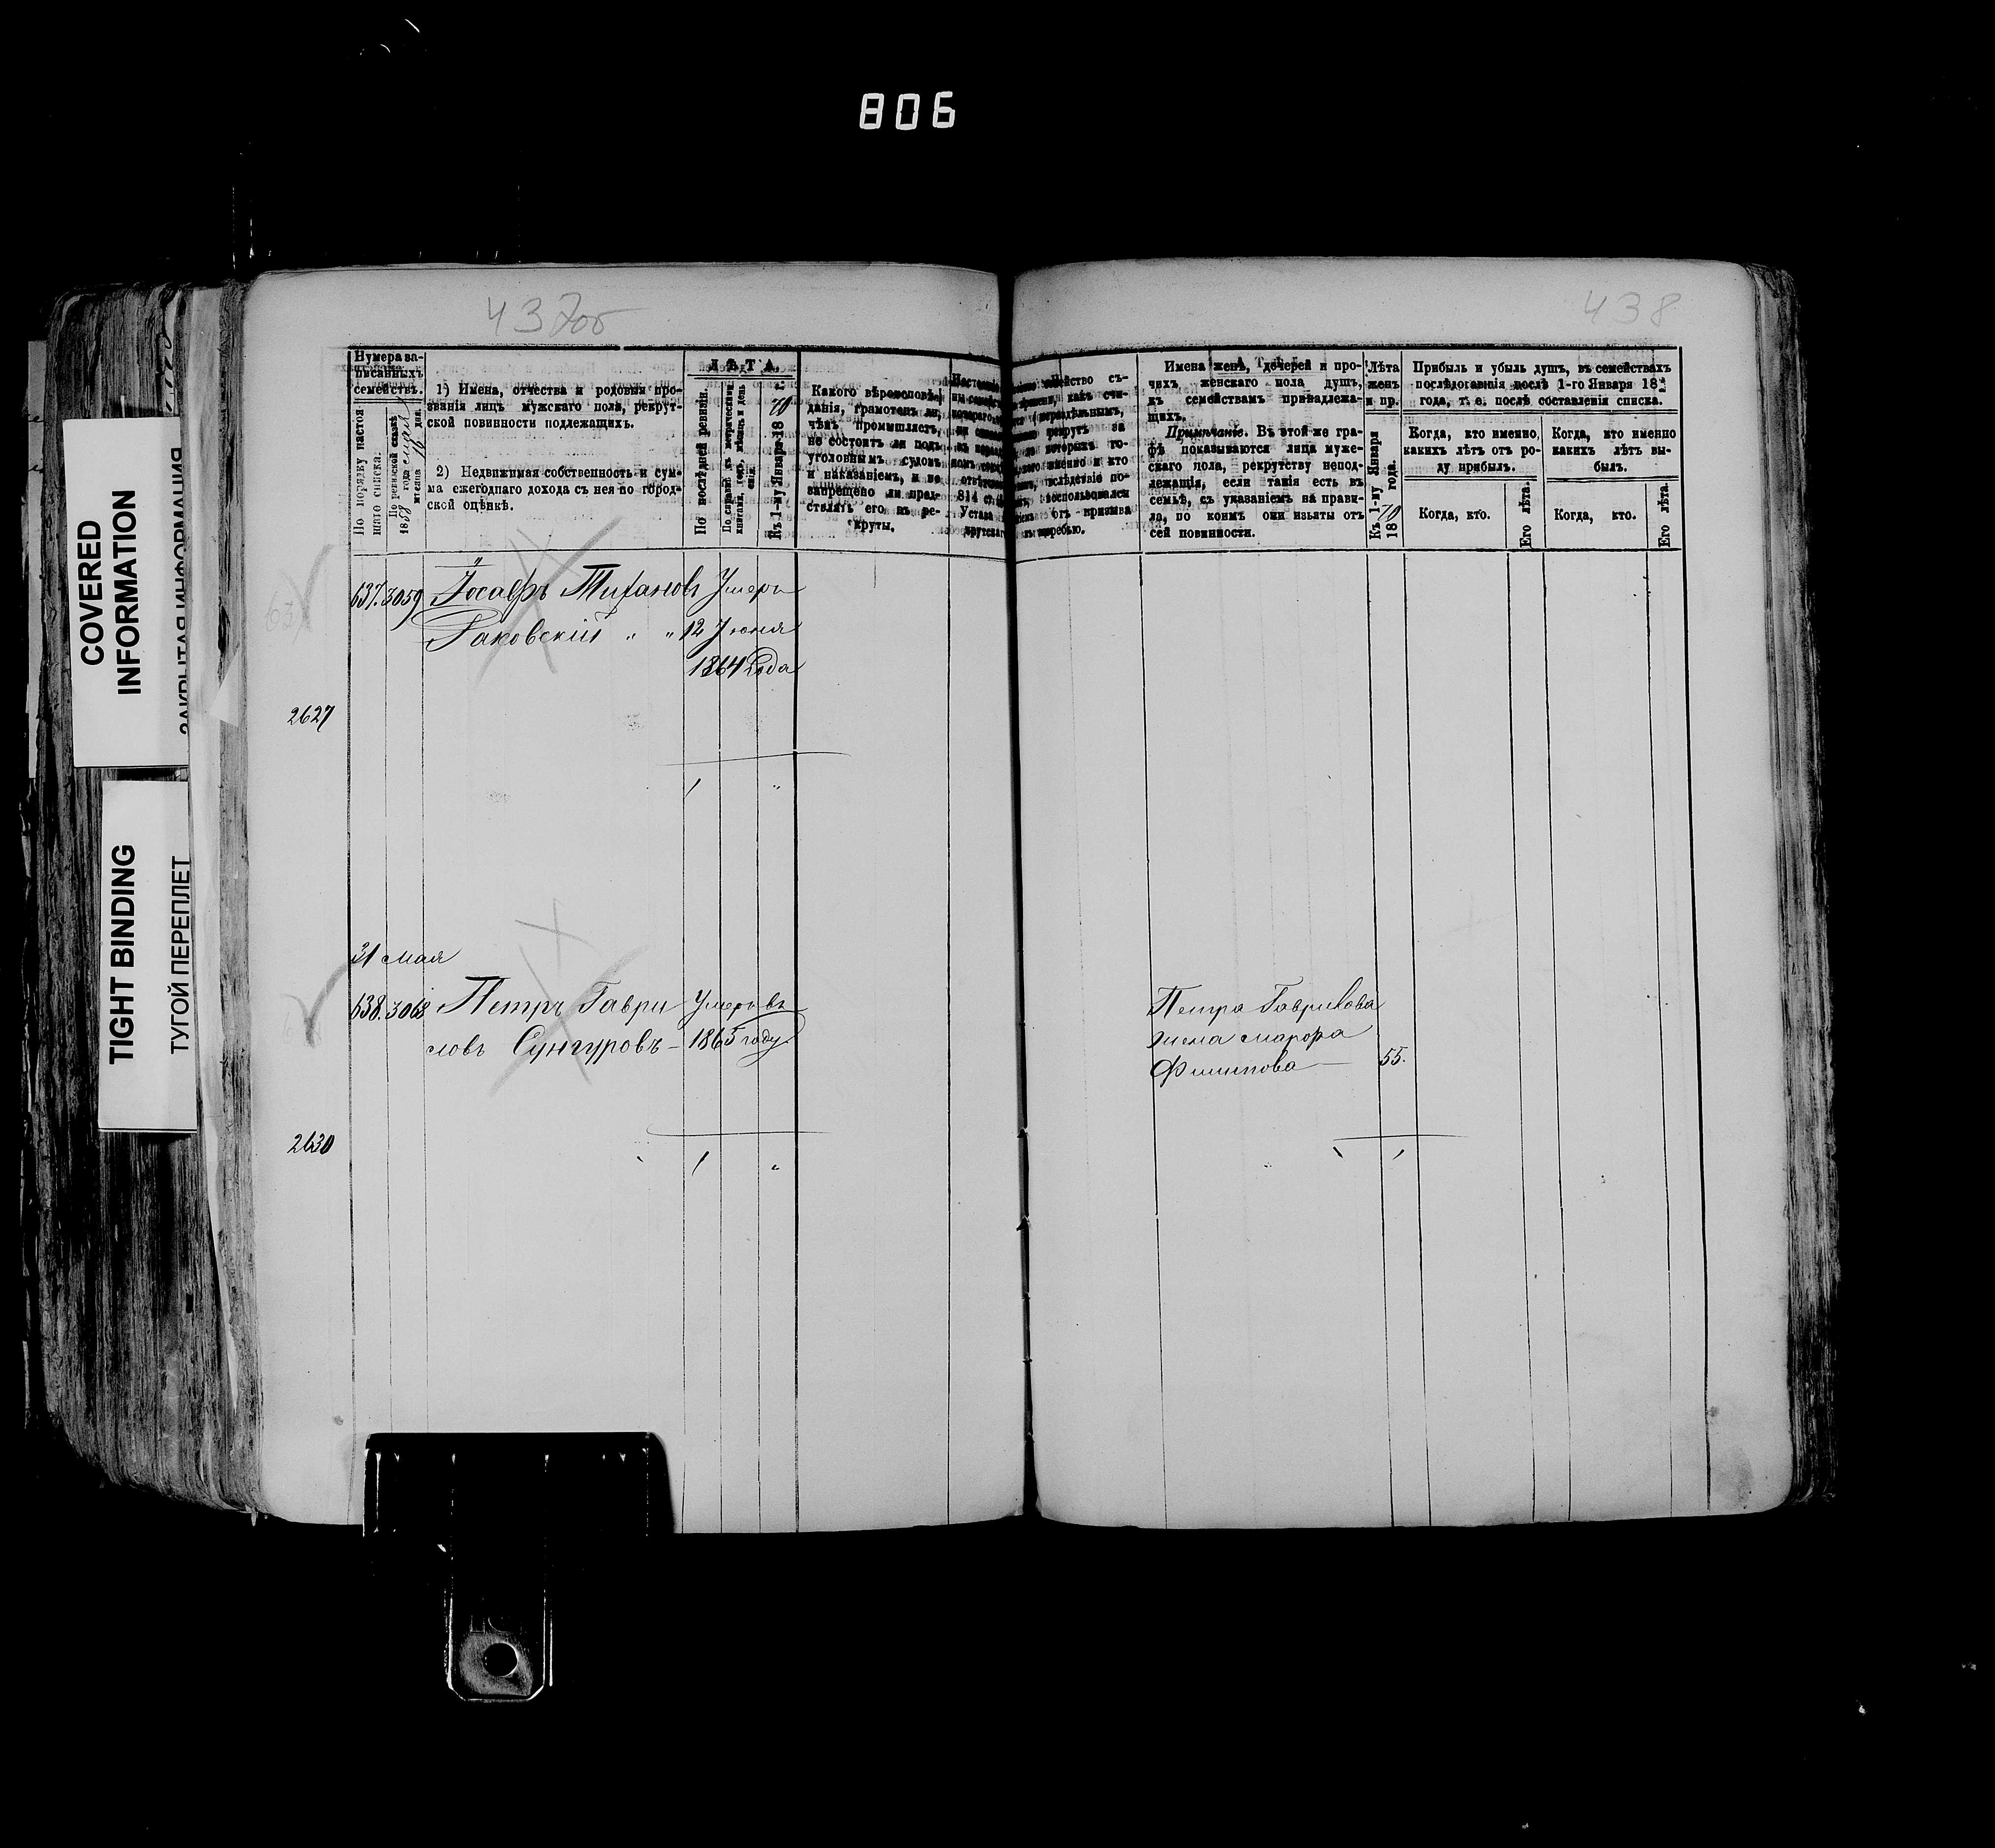 806
437об
438
COVERED
INFORMATION
ЗАКРЫТАЯ ИНФОРМАЦИЯ
TIGHT BINDING
ТУГОЙ ПЕРЕПЛЕТ
Нумера за-
писанныхъ
семействъ.
По порядку настоя-
щаго списка.
По ревизской сказкѣ
1858 года
мѣсяца дня.
1) Имена, отчества и родовыя про-
званія лицъ мужскаго пола, рекрут-
ской повинности подлежащихъ.
2) Недвижимая собственность и сум-
ма ежегоднаго дохода съ нея по город-
ской оцѣнкѣ.
ЛѢТА.
По послѣдней ревизіи.
По справкѣ съ метрическими
книгами, годъ, мѣсяцъ и день
Къ 1-му Января 1870 г.
Какого вѣроисповѣ-
данія, грамотенъ ли,
чѣмъ промышляетъ,
не состоитъ ли подъ
уголовнымъ судомъ
и наказаніемъ, и не
запрещено ли пред-
ставлять его въ ре-
круты.
Имена женъ, дочерей и про-
чихъ женскаго пола душъ,
къ семействамъ принадлежа-
щихъ.
Примѣчаніе. Въ этой же гра-
фѣ показываются лица муже-
скаго пола, рекрутству непод-
лежащія, если такія есть въ
семьѣ, съ указаніемъ на прави-
ла, по коимъ они изъяты отъ
сей повинности.
Лѣта
женъ
и пр.
Къ 1-му Января
1870 года.
Прибыль и убыль душъ, въ семействахъ
послѣдовавшія послѣ 1-го Января 18
года, т. е. послѣ составленія списка.
Когда, кто именно,
какихъ лѣтъ отъ ро-
ду прибылъ.
Когда, кто именно
какихъ лѣтъ вы-
былъ.
Когда, кто.
Его лѣта.
Когда, кто.
Его лѣта.
637. 3059 Іосафъ Тихановъ Умеръ
Раковскій " " 12 Июня
1864 Года
2627
31 мая
638. 3068 Петръ Гаври Умеръ въ
ловъ Сунгуровъ – 1865 году
Петра Гаврилова
жена
Филипова — 55.
2630